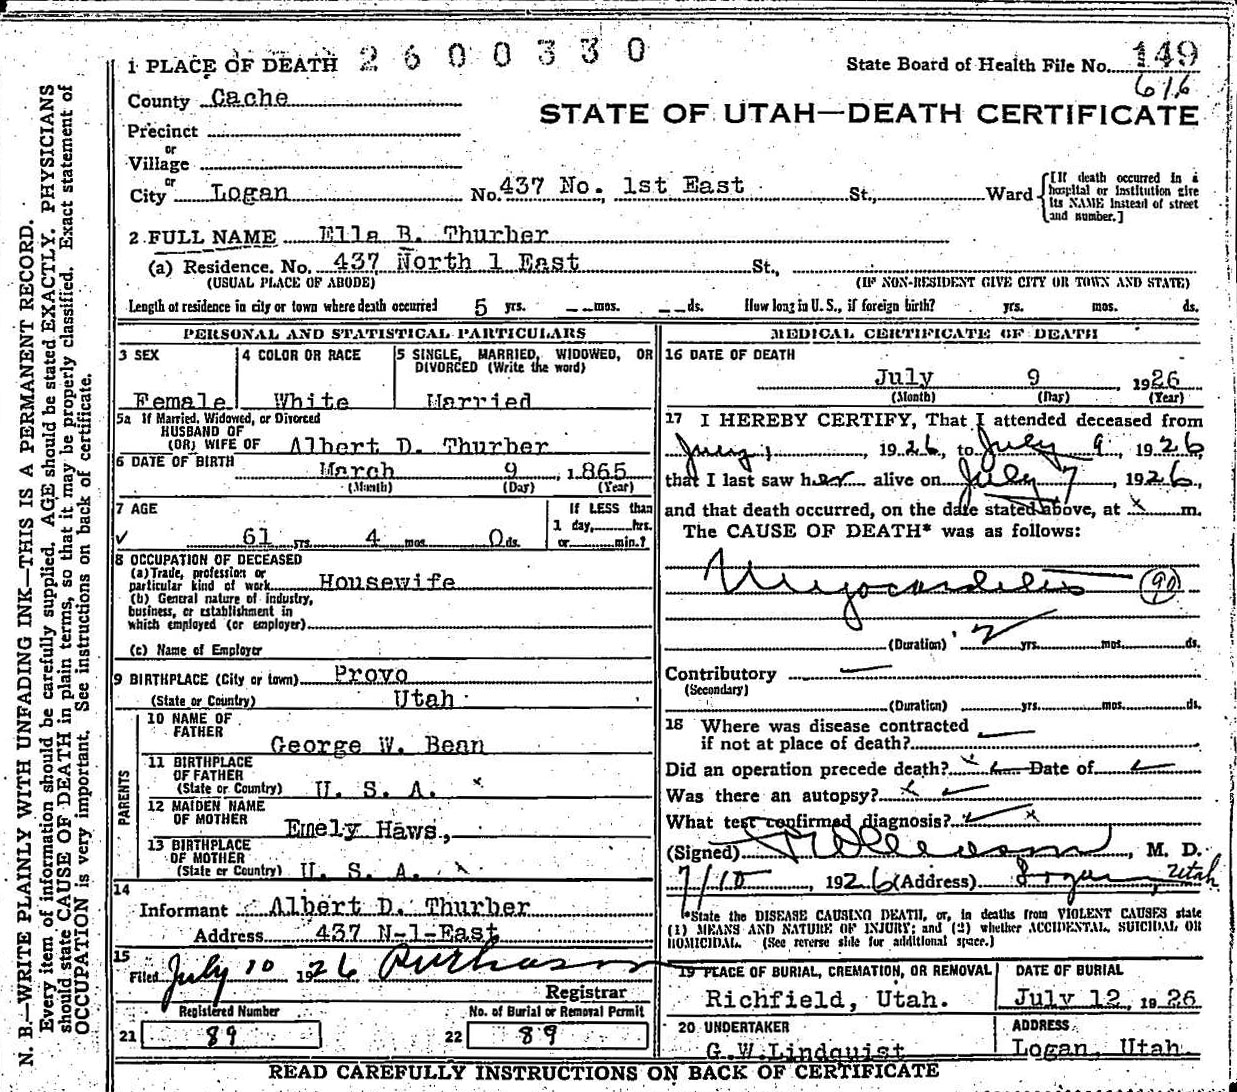 N. B.—WRITE PLAINLY WITH UNFADING INK—THIS IS A PERMANENT RECORD.
Every item of information should be carefully supplied. AGE should be stated EXACTLY. PHYSICIANS
should state CAUSE OF DEATH in plain terms, so that it may be properly classified. Exact statement of
OCCUPATION is very important. See instructions on back of certificate.
2600330
1 PLACE OF DEATH
State Board of Health File No. 149
616
County Cache
STATE OF UTAH—DEATH CERTIFICATE
Precinct
or
Village
or
City Logan No. 437 No. 1st East St., Ward
[If death occurred in a
hospital or institution give
its NAME instead of street
and number.]
2 FULL NAME Ella B. Thurber
(a) Residence. No. 437 North 1 East St.,
(USUAL PLACE OF ABODE) (IF NON-RESIDENT GIVE CITY OR TOWN AND STATE)
Length of residence in city or town where death occurred 5 yrs. -- mos. -- ds. How long in U. S., if foreign birth? yrs. mos. ds.
PERSONAL AND STATISTICAL PARTICULARS
3 SEX
Female
4 COLOR OR RACE
White
5 SINGLE, MARRIED, WIDOWED, OR
DIVORCED (Write the word)
Married
5a If Married, Widowed, or Divorced
HUSBAND OF
(OR) WIFE OF Albert D. Thurber
6 DATE OF BIRTH
March 9, 1865
(Month) (Day) (Year)
7 AGE
61 yrs. 4 mos. 0 ds.
If LESS than
1 day, hrs.
or min.?
8 OCCUPATION OF DECEASED
(a) Trade, profession or
particular kind of work Housewife
(b) General nature of industry,
business, or establishment in
which employed (or employer)
(c) Name of Employer
9 BIRTHPLACE (City or town) Provo
(State or Country) Utah
PARENTS
10 NAME OF
FATHER
George W. Bean
11 BIRTHPLACE
OF FATHER
(State or Country) U. S. A. x
12 MAIDEN NAME
OF MOTHER
Emely Haws,
13 BIRTHPLACE
OF MOTHER
(State or Country) U. S. A. x
14
Informant Albert D. Thurber
Address 437 N-1-East
15
Filed July 10 1926
Registrar
Registered Number
21 89
No. of Burial or Removal Permit
22 89
MEDICAL CERTIFICATE OF DEATH
16 DATE OF DEATH
July 9, 1926
(Month) (Day) (Year)
17 I HEREBY CERTIFY, That I attended deceased from
July 1, 1926, to July 9, 1926
that I last saw her alive on July 7, 1926,
and that death occurred, on the date stated above, at x m.
The CAUSE OF DEATH* was as follows:
Myocarditis 90
(Duration) 2 yrs. mos. ds.
Contributory
(Secondary)
(Duration) yrs. mos. ds.
18 Where was disease contracted
if not at place of death?
Did an operation precede death? x Date of
Was there an autopsy? x
What test confirmed diagnosis? x
(Signed) , M. D.
7/10, 1926 (Address) Logan, Utah
*State the DISEASE CAUSING DEATH, or, in deaths from VIOLENT CAUSES state
(1) MEANS AND NATURE OF INJURY; and (2) whether ACCIDENTAL, SUICIDAL OR
HOMICIDAL. (See reverse side for additional space.)
19 PLACE OF BURIAL, CREMATION, OR REMOVAL
Richfield, Utah.
DATE OF BURIAL
July 12, 1926
20 UNDERTAKER
G.W.Lindquist
ADDRESS
Logan, Utah.
READ CAREFULLY INSTRUCTIONS ON BACK OF CERTIFICATE